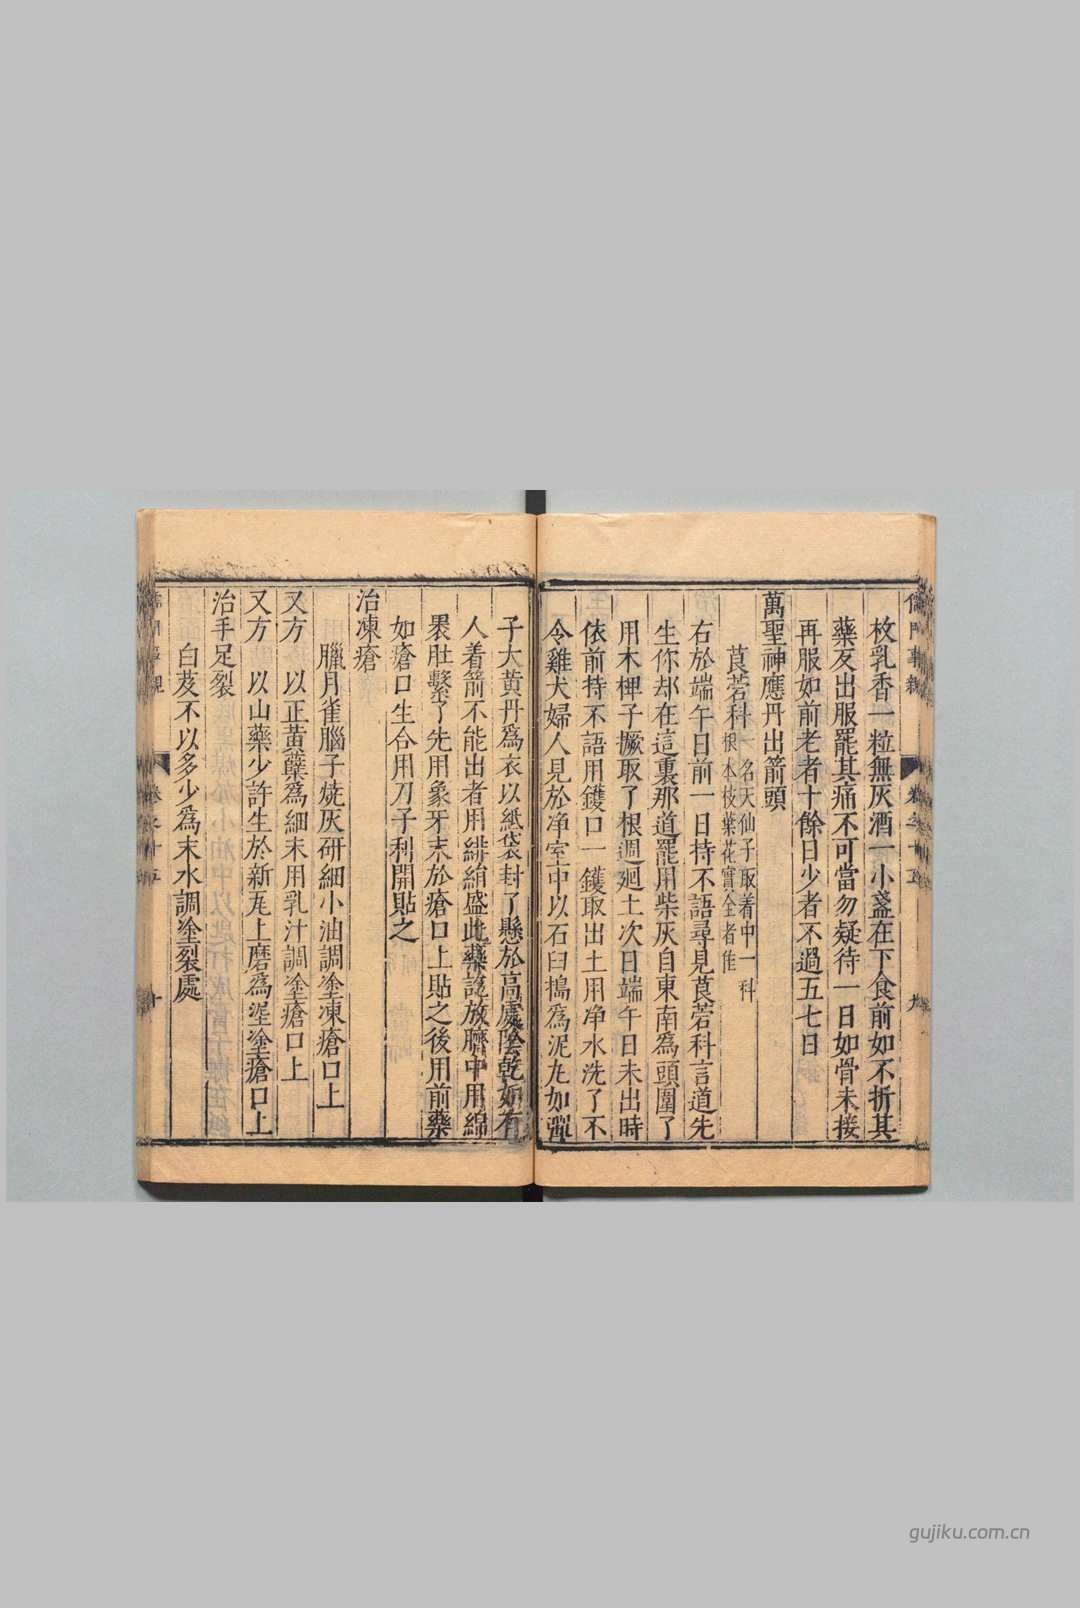 儒門事親 卷之十五 九
枚乳香一粒無灰酒一小盞在下食前如不折其
藥友出服罷其痛不可當勿疑待一日如骨未接
再服如前老者十餘日少者不過五七日
萬聖神應丹出箭頭
莨菪科一名天仙子取着中一科
根本枝葉花實全者佳
右於端午日前一日持不語尋見莨菪科言道先
生你却在這裏那道罷用柴灰自東南為頭圍了
用木椑子撅取了根週廻土次日端午日未出時
依前持不語用钁口一钁取出土用净水洗了不
令雞犬婦人見於净室中以石臼搗為泥丸如彈
子大黄丹爲衣以紙袋封了懸於高處陰乾如有
人着箭不能出者用緋絹盛此藥訖放臍中用綿
褁肚繫了先用象牙末於瘡口上貼之後用前藥
如瘡口生合用刀子利開貼之
治凍瘡
臘月雀腦子燒灰研細小油調塗凍瘡口上
又方 以正黄蘗為細末用乳汁調塗瘡口上
又方 以山藥少許生於新瓦上磨為埿塗瘡口上
治手足裂
白芨不以多少為末水調塗裂處
儒門事親 卷之十五 十
gujiku.com.cn